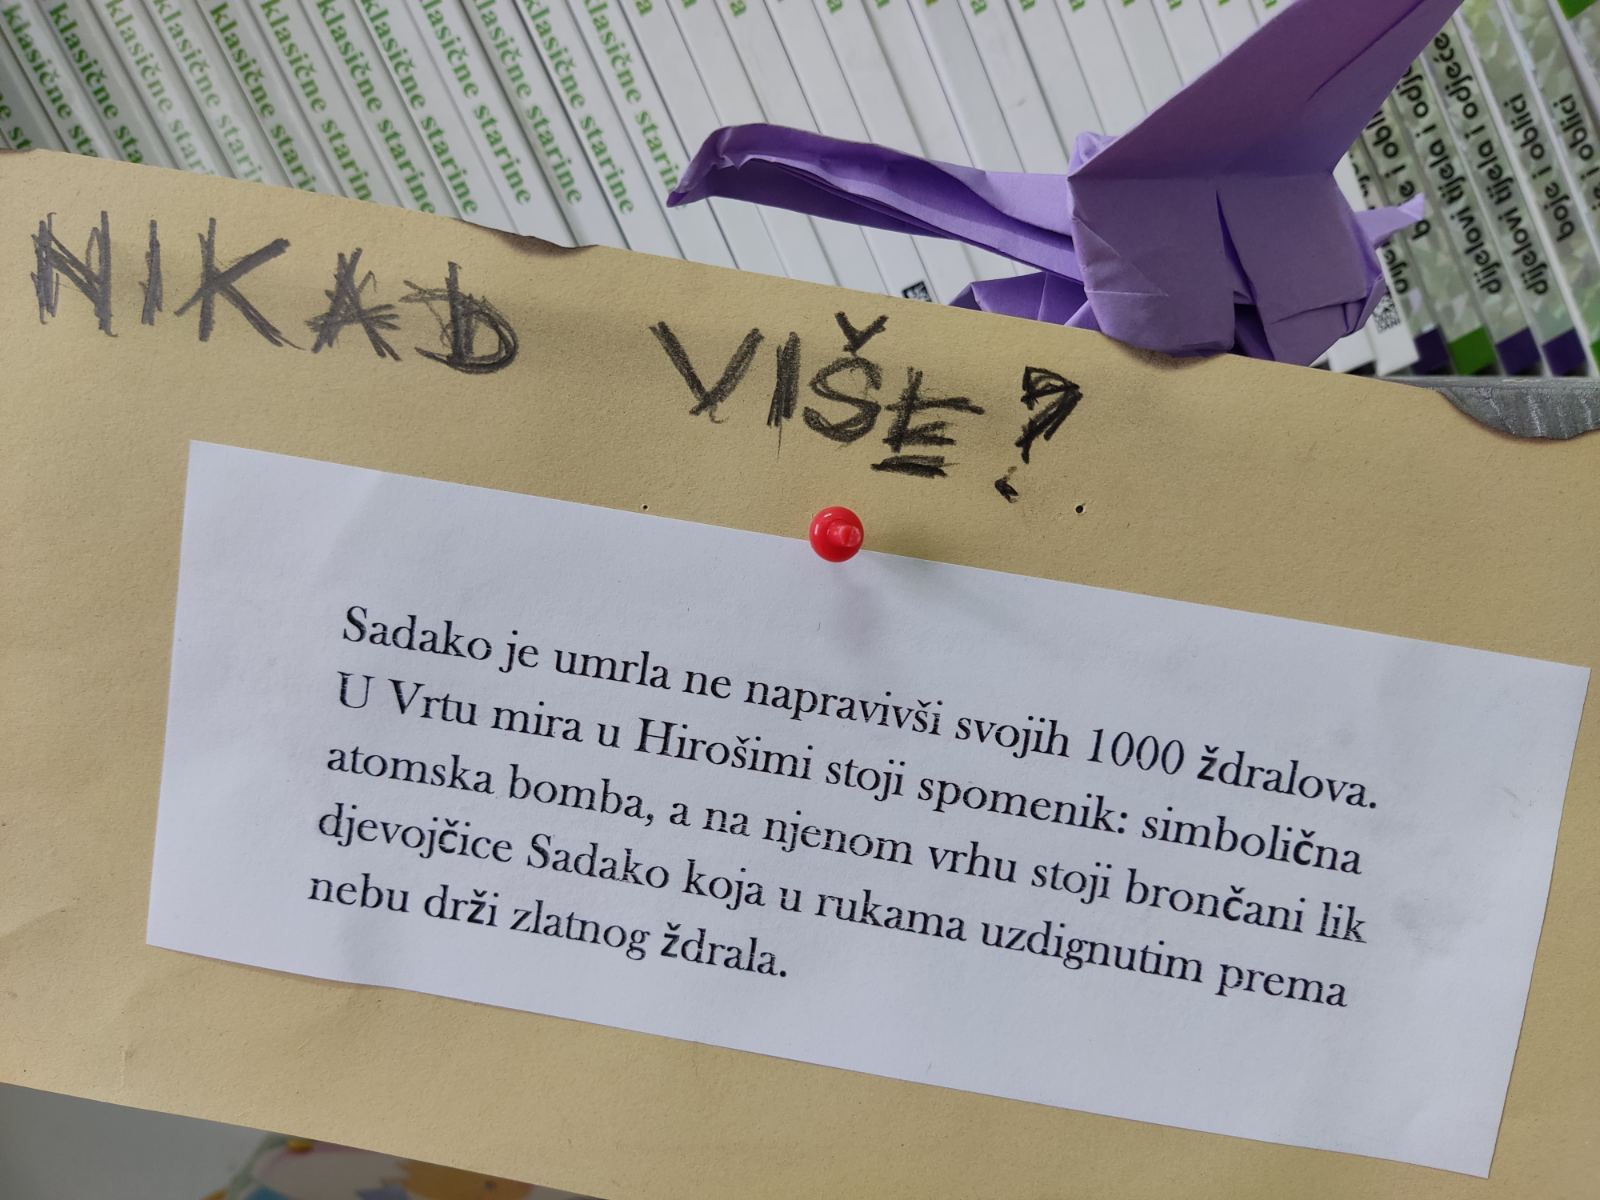 klasične starine
klasične starine
klasične starine
klasične starine
klasične starine
klasične starine
klasične starine
klasične starine
klasične starine
boje i oblici
dijelovi tijela i odjeće
dijelovi tijela i odjeće
boje i oblici
NIKAD VIŠE?
Sadako je umrla ne napravivši svojih 1000 ždralova.
U Vrtu mira u Hirošimi stoji spomenik: simbolična
atomska bomba, a na njenom vrhu stoji brončani lik
djevojčice Sadako koja u rukama uzdignutim prema
nebu drži zlatnog ždrala.